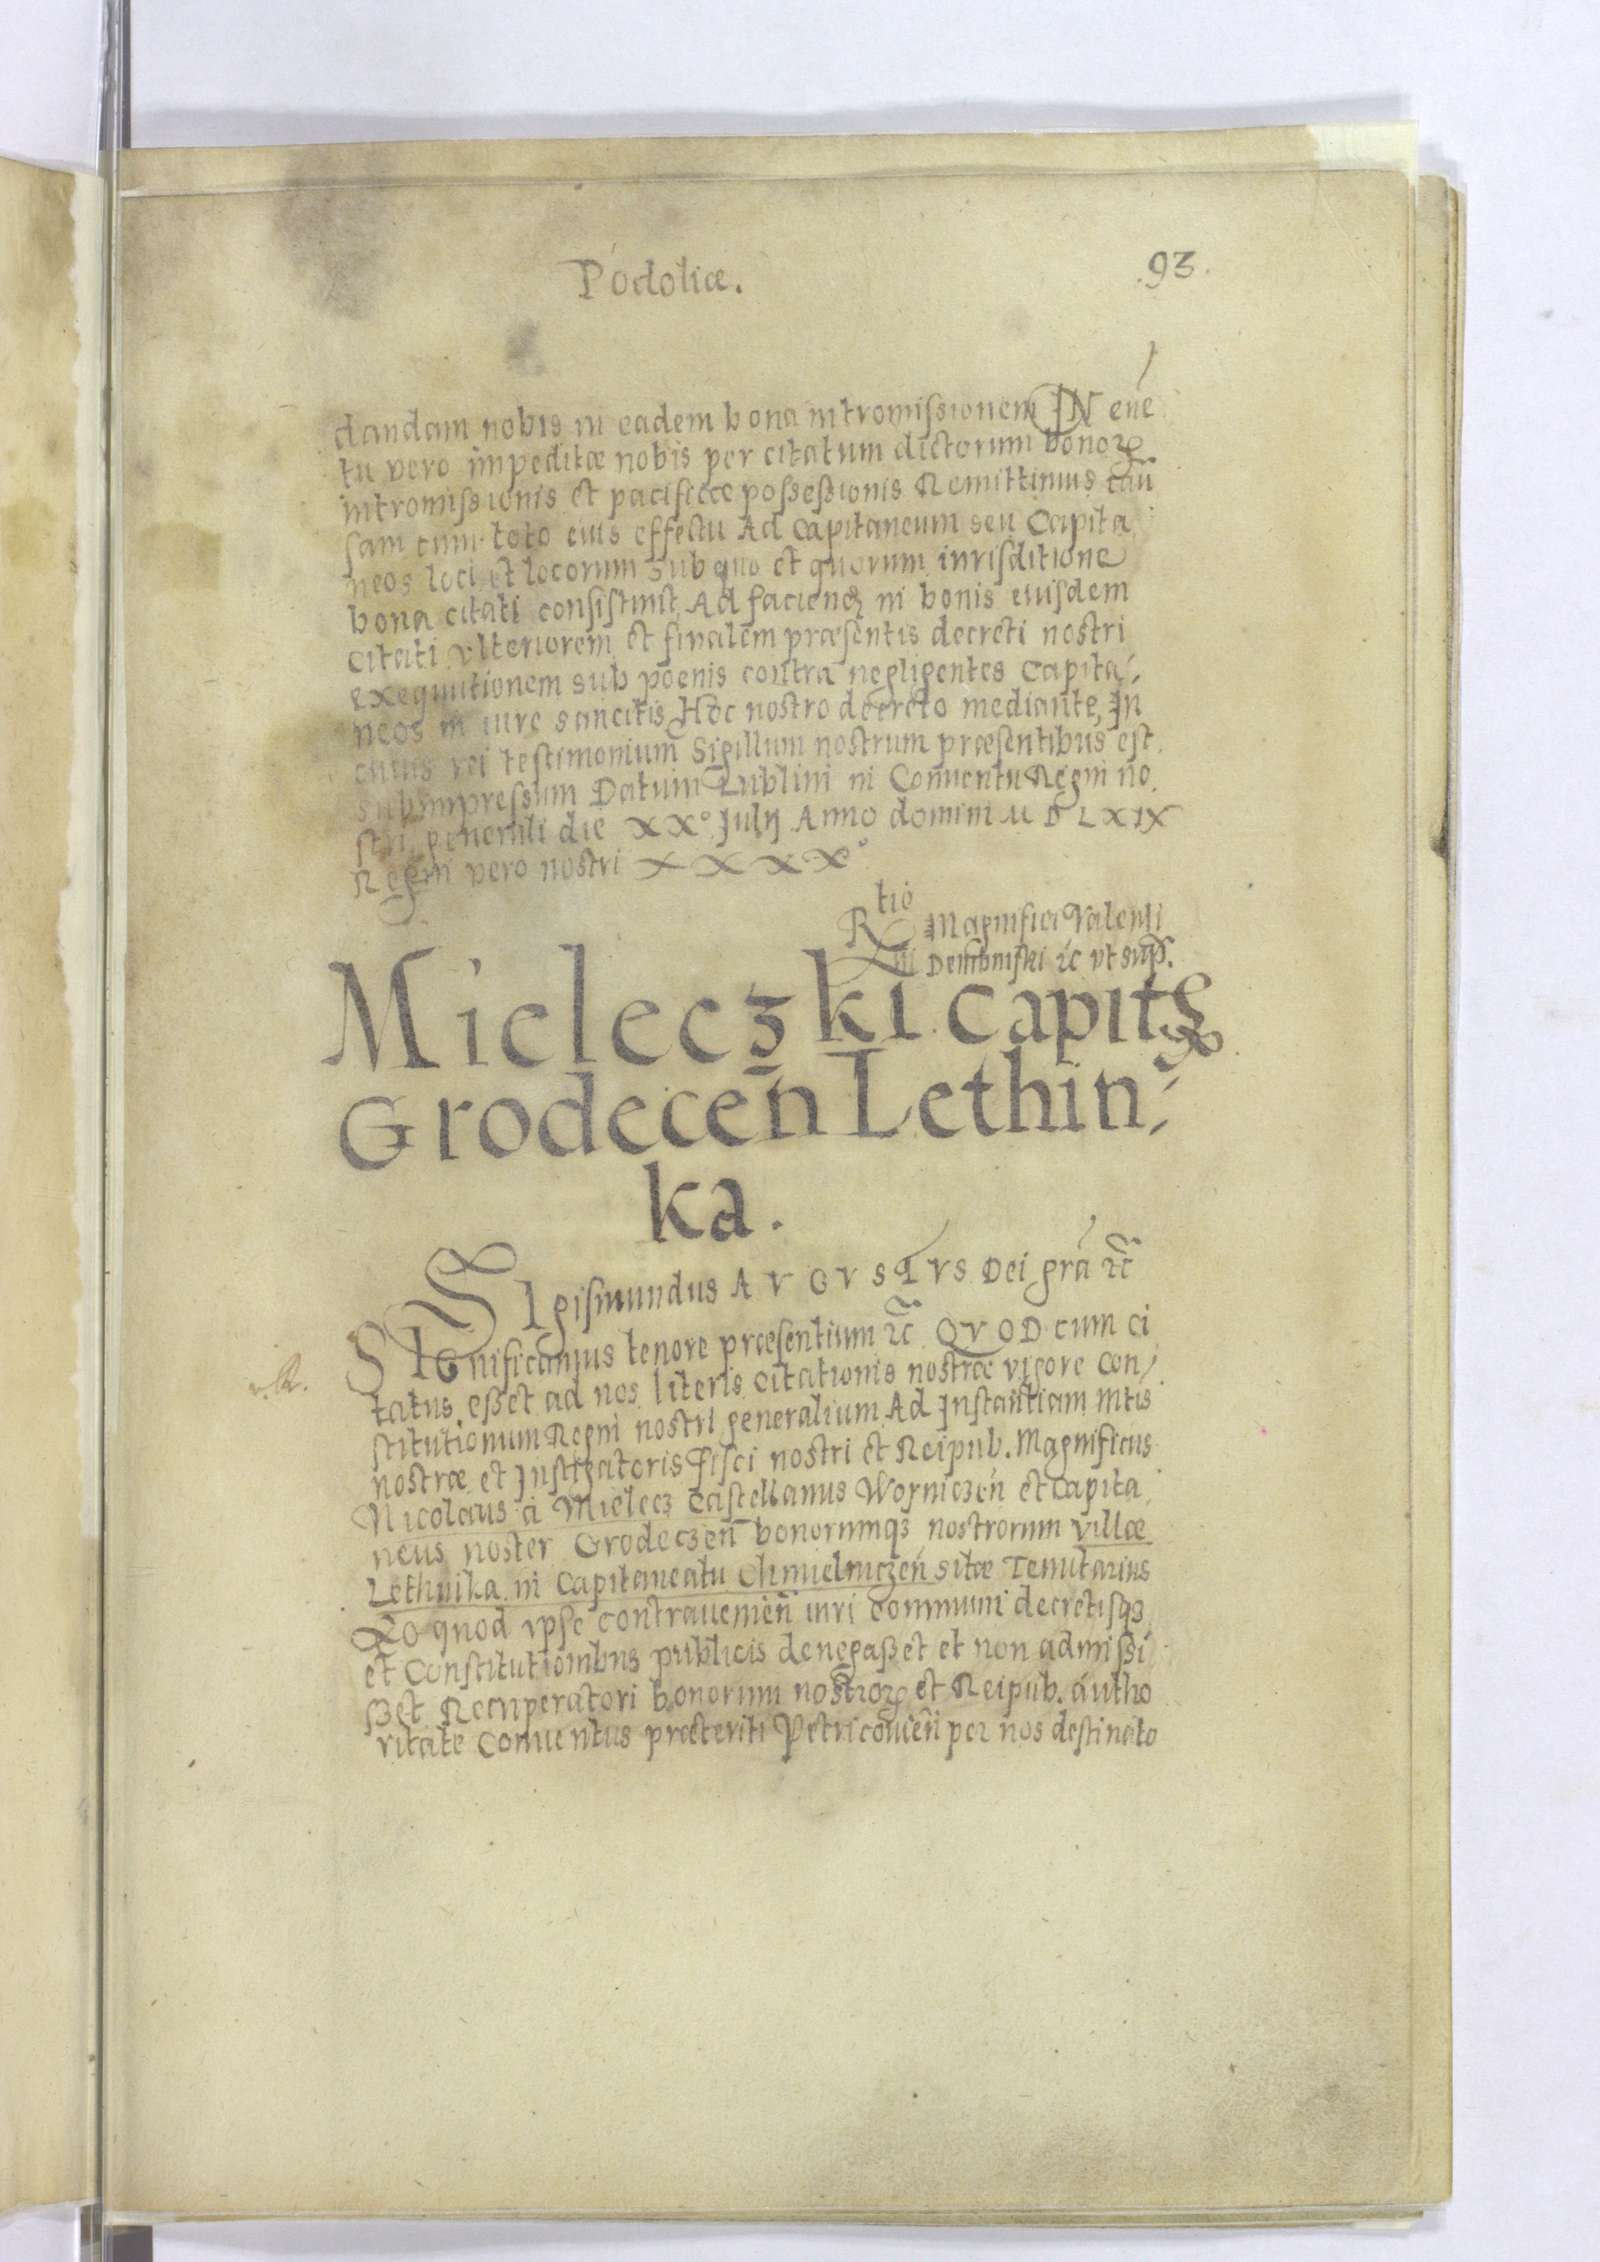 Podoliæ.
93.
dandam nobis in eadem bona intromiſsionem IN euē
tu vero impeditæ nobis per citatum dictorum bonoꝝ
intromiſsionis et pacificæ poſseſsionis Remittimus cau
ſam cum toto eius effectu Ad Capitaneum seu Capita
neos loci et locorum sub quo et quorum iurisditione
bona citati conſiſtunt Ad faciendꝫ in bonis eiusdem
citati vlteriorem et finalem præſentis decreti nostri
exequutionem sub poenis contra negligentes Capita,
neos in iure sancitis Hoc nostro decreto mediante, In
cuius rei teſtimonium Sigillum nostrum præſentibus eſt
subimpreſsum Datum Lublini in Conuentu Regni no,
ſtri generali die XX° Julij Anno domini M D LXIX
Regni vero nostri XXXX°
Rtio Magnifici Valenti
ni Dembinſki ꝛc vt sup.
Mieleczki Capitꝭ
Grodeceñ Lethin,
ka.
SIgiſmundus AVGVSTVS Dei grā ꝛc̄
SIGnificamus tenore præſentium ꝛc̄ QVOD cum ci
tatus eſset ad nos literis citationis nostræ vigore con,
ſtitutionum Regni nostri generalium Ad Inſtantiam Mtis
nostræ et Inſtigatoris Fiſci nostri et Reipub. Magnificus
Nicolaus a Mielecz Caſtellanus Woyniczeń et Capita
neus noster Grodeczeñ bonorumqꝫ nostrorum villæ
Lethnika in Capitaneatu Chmielniczeń sitæ Tenutarius
Eo quod ipſe contraueniēn iuri communi decretisqꝫ
et Conſtitutionibus publicis denegaſset et non admiſsi
ſset Recuperatori bonorum nostroꝝ et Reipub. autho
ritate Conuentus præteriti Petricouień per nos deſtinato